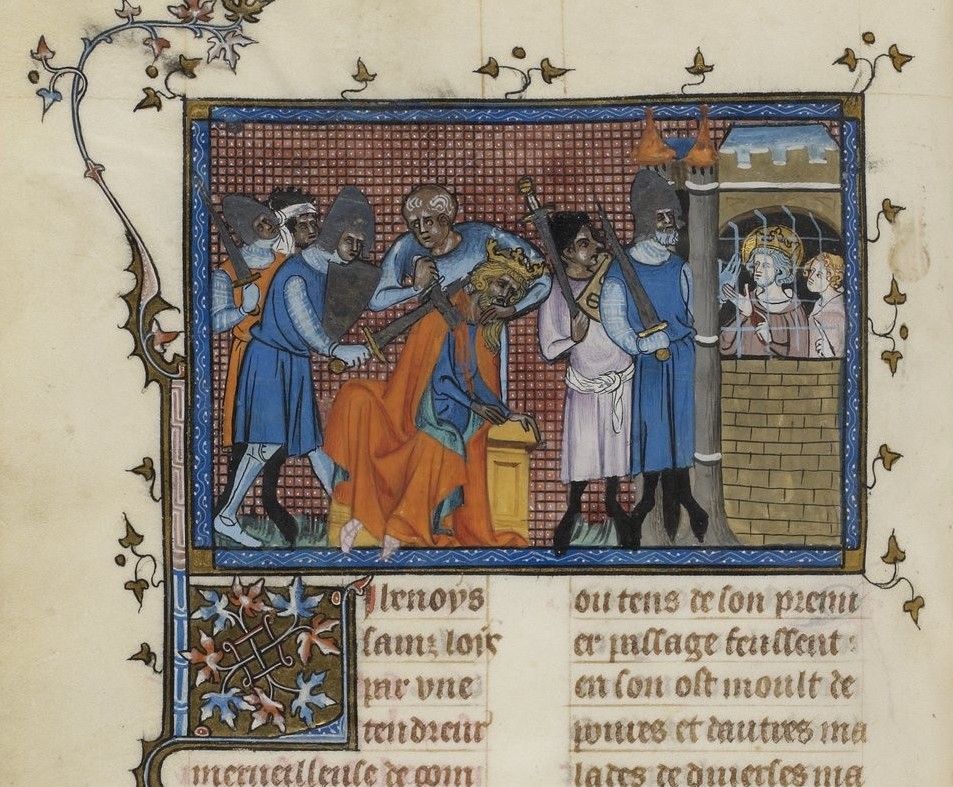 li benoys
sainz loys
par vne
tendreur
merueilleuse de com
ou tens de son premi
er passage feussent
en son ost moult de
poures et dautres ma
lades de diuerses ma